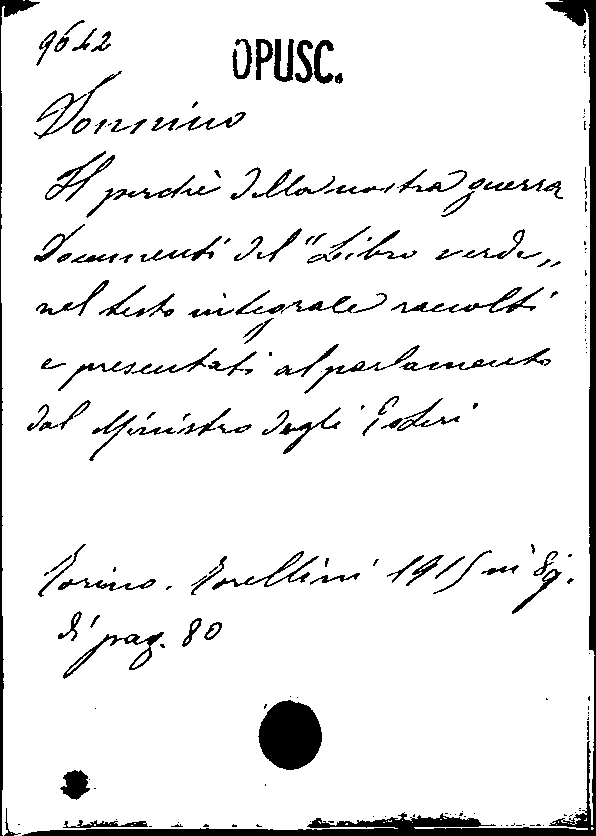 9642
OPUSC.
Sonnino
Il perchè della nostra guerra
Documenti del "Libro verde„
nel testo integrale raccolti
e presentati al parlamento
dal Ministro degli Esteri
Torino. 1915 in 8º.
di pag. 80